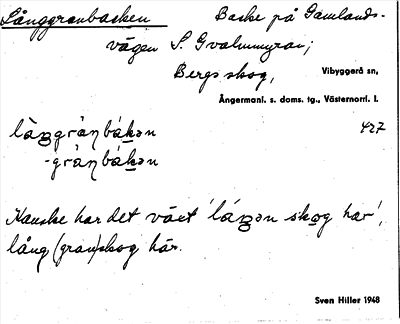 Långgranbacken Backe på Gamlands-
vägen S. Gvalnmyran;
Bergs skog, Vibyggerå sn,
Ångermanl. s. doms. tg., Västernorrl. l.
427
Kanske har det växt 'láŋən skog här',
lång (gran)skog här.
Sven Hiller 1948